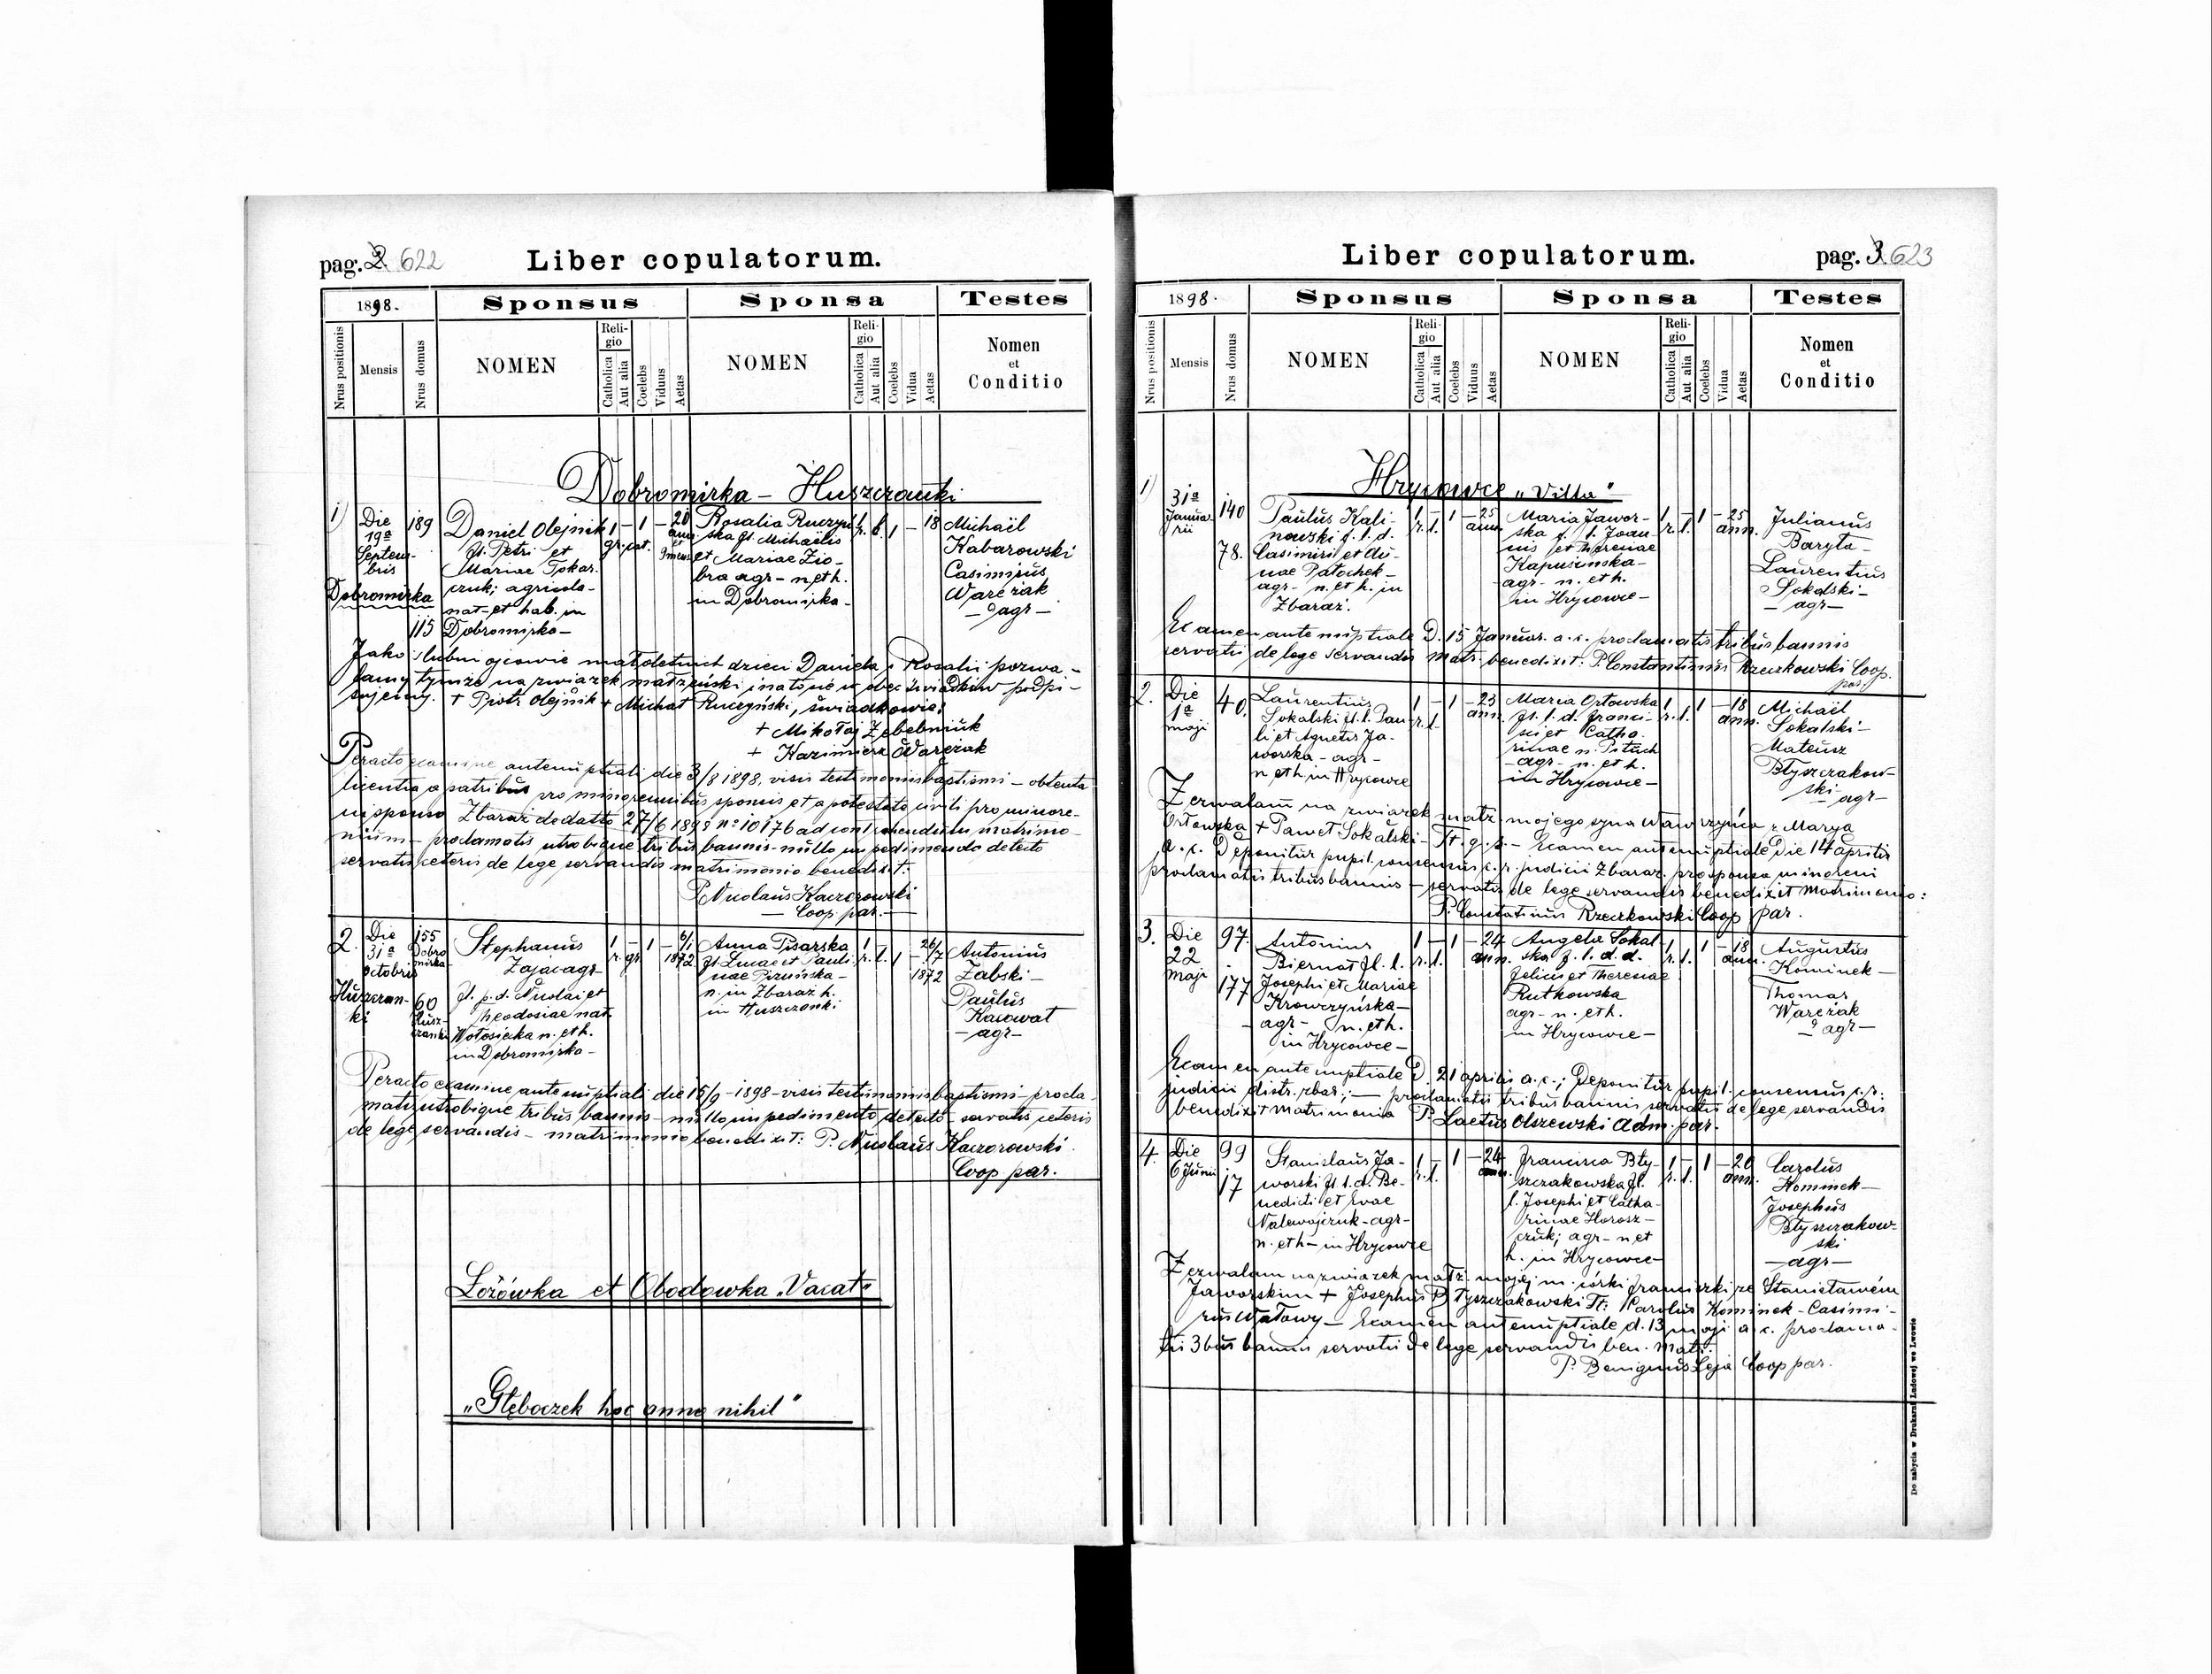 pag. 2. 622
Liber copulatorum.
1898.
Sponsus
Sponsa
Testes
Nrus positionis
Mensis
Nrus domus
NOMEN
Reli-
gio
Catholica
Aut alia
Coelebs
Viduus
Aetas
NOMEN
Reli-
gio
Catholica
Aut alia
Coelebs
Vidua
Aetas
Nomen
et
Conditio
Dobromirka – Huszczanki
1)
Die
19ª
Septem-
bris
Dobromirka
189
115
Daniel Olejnik
fil. Petri et
Mariae Tokar-
czuk; agricola-
nat- et hab. in
Dobromirka-
1 – 1 – 20
gr. cat.
ann.
et
9 mens.
Rosalia Ruczyń-
ska fil. Michaëlis
et Mariae Zio-
bra agr- n. et h.
in Dobromirka-
1
r. l.
1 – 18
Michaël
Kabarowski
Casimirus
Wareżak
– agr –
Jako ślubni ojcowie małoletnich dzieci Daniela i Rosalii pozwa-
lamy tymże na związek małżeński i na to się w obec świadków podpi-
sujemy. + Piotr Olejnik + Michał Ruczyński, świadkowie:
+ Mikołaj Zbebniuk
+ Kazimierz Wareżak
Peracto examine antenuptiali die 3/8 1898, visis testimoniis baptismi – obtenta
licentia a patribus pro minorennibus sponsis et a potestate civili pro minore-
ni sponso Zbaraż de datto 27/6 1898 nº 10176 ad contrahendum matrimo-
nium – proclamatis utrobique tribus bannis – nullo impedimento detecto
servatis ceteris de lege servandis matrimonio benedixit:
P. Nicolaus Kaczorowski
– Coop. par. –
2.
Die
31ª
Octobris
Huszczan-
ki
155
Dobro-
mirka
60
Husz-
czanki
Stephanus
Zając agr-
fil. p. d. Nicolai et
Theodosiae nat.
Wołosiecka n. et h.
in Dobromirka-
1 – 1 – 6/1
r. gr.
1872
Anna Pisarska
fil. Lucae et Pauli-
nae Pizuńska-
n. in Zbaraż h.
in Huszczanki
1
r. l.
1 – 26/7
1872
Antonius
Żabski-
Paulus
Kasowat
– agr –
Peracto examine antenuptiali die 15/9 – 1898 – visis testimoniis baptismi – procla-
matis utrobique tribus bannis – nullo impedimento detecto – servatis ceteris
de lege servandis – matrimonio benedixit: P. Nicolaus Kaczorowski
Coop. par.
Łozówka et Obodowka „Vacat"
„Głęboczek hoc anno nihil"
Liber copulatorum.
pag. 3. 623
1898.
Sponsus
Sponsa
Testes
Nrus positionis
Mensis
Nrus domus
NOMEN
Reli-
gio
Catholica
Aut alia
Coelebs
Viduus
Aetas
NOMEN
Reli-
gio
Catholica
Aut alia
Coelebs
Vidua
Aetas
Nomen
et
Conditio
Hrycowce „Villa"
1)
31ª
Janua-
rii
140
78.
Paulus Kali-
nowski f. l. d.
Casimiri et An-
nae Patochek-
agr- n. et h. in
Zbaraż.
1 – 1 – 25
r. l.
ann.
Maria Jawor-
ska f. l. Joan-
nis et Theresiae
Kapuścinska-
agr- n. et h.
in Hrycowce-
1 – 1 – 25
r. l.
ann.
Julianus
Baryta-
Laurentius
Sokalski-
– agr –
Examen antenuptiale D. 15 Januar. a. c. proclamatis tribus bannis
servatis de lege servandis matr. benedixit: P. Constantinus Rzeczkowski Coop.
par.
2.
Die
1ª
maji
40.
Laurentius
Sokalski fil. l. Pau-
li et Agnetis Ja-
worska – agr –
n. et h. in Hrycowce
1 – 1 – 23
r. l.
ann.
Maria Orłowska
fil. l. d. Franci-
sci et Catha-
rinae n. Pituch
– agr- n. et h.
in Hrycowce-
1 1 – 18
r. l.
ann.
Michaël
Sokalski-
Mateusz
Błyszczakow-
ski
– agr –
Zezwalam na związek małż. mojego syna Wawrzyńca z Maryą
Orłowską + Paweł Sokalski – Tt. q. s. – Examen antenuptiale Die 14 Aprilis
a. c. Deponitur pupil. consensus c. r. judicii Zbaraż. pro sponsa minoreni
proclamatis tribus bannis – servatis de lege servandis benedixit Matrimonio:
P. Constatinus Rzeczkowski Coop par.
3.
Die
22
maji
97.
177
Antonius
Biernat fil. l.
Josephi et Mariae
Krowczyńska-
agr- n. et h.
in Hrycowce-
1 – 1 – 24
r. l.
ann.
Angela Sokal-
ska f. l. d. d.
Felicis et Theresiae
Rutkowska
agr- n. et h.
in Hrycowce-
1 1 – 18
r. l.
ann.
Augustus
Kominek-
Thomas
Wareżak
– agr –
Examen antenuptiale D. 21 aprilis a. c.; Deponitur pupil. consensus c. r.
judicii distr. zbar.; – proclamatis tribus bannis servatis de lege servandis
benedixit Matrimonio P. Laetus Olszewski Adm. par.
4.
Die
6 Junii
99
17
Stanislaus Ja-
worski fil. l. d. Be-
nedicti et Evae
Nalewajczuk-agr-
n. et h- in Hrycowce
1 – 1 – 24
r. l.
ann.
Francisca Bły-
szczakowska fil.
l. Josephi et Catha-
rinae Horosz-
czuk; agr- n. et
h. in Hrycowce-
1 – 1 – 20
r. l.
ann.
Carolus
Kominek-
Josephus
Błyszczakow-
ski
– agr –
Zezwalam na związek małż. mojej m. córki Franciszki ze Stanisławem
Jaworskim + Josephus Błyszczakowski Tt: Carolus Kominek-Casimi-
rus Watowy – Examen antenuptiale d. 13 maji a. c. proclama-
tis 3bus bannis servatis de lege servandis ben. Matr.
P. Benignus Leja Coop par.
Do nabycia w Drukarni Ludowej we Lwowie